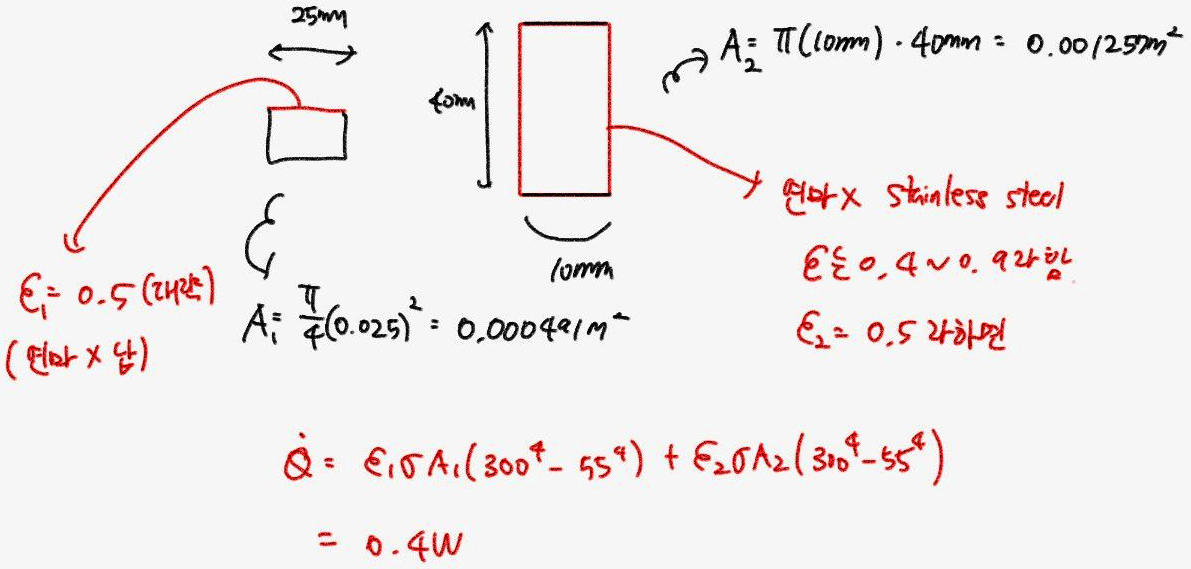 25mm
40mm
A₂= π(10mm)·40mm = 0.001257m²
연마x stainless steel
ε는 0.4~0.9라함.
ε₂= 0.5 라하면
10mm
ε₁= 0.5 (대략)
(연마x 납)
A₁= π/4(0.025)² = 0.000491m²
Q̇ = ε₁σA₁(300⁴-55⁴) + ε₂σA₂(300⁴-55⁴)
= 0.4W